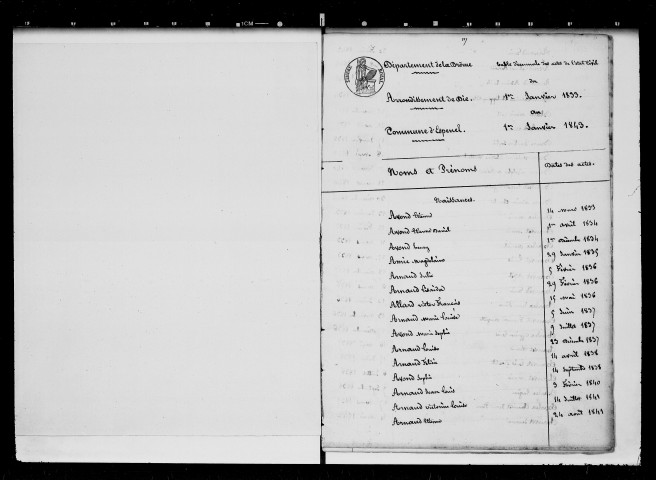 Département de la Drôme
Arrondissement de Die.
Commune d'Espenel.
Table Décennale des actes de l'état Civil
du
1er Janvier 1833.
au
1er Janvier 1843.
Noms et Prénoms
Dates des actes.
Naissances.
Avond 14 mars 1833
Avond 1er avril 1834
Avond 1er décembre 1834
Magdelaine 29 Janvier 1835
Arnaud Julie 5 Février 1836
Arnaud 29 Février 1836
Allard François 15 mai 1836
Arnaud Marie Louise 5 Juin 1837
Avond Marie Sophie 9 Juillet 1837
Arnaud Louis 23 décembre 1837
Arnaud 14 avril 1838
Avond Sophie 14 septembre 1838
Arnaud Jean Louis 3 Février 1840
Arnaud Victorine Louise 14 Juillet 1841
Arnaud 24 août 1841